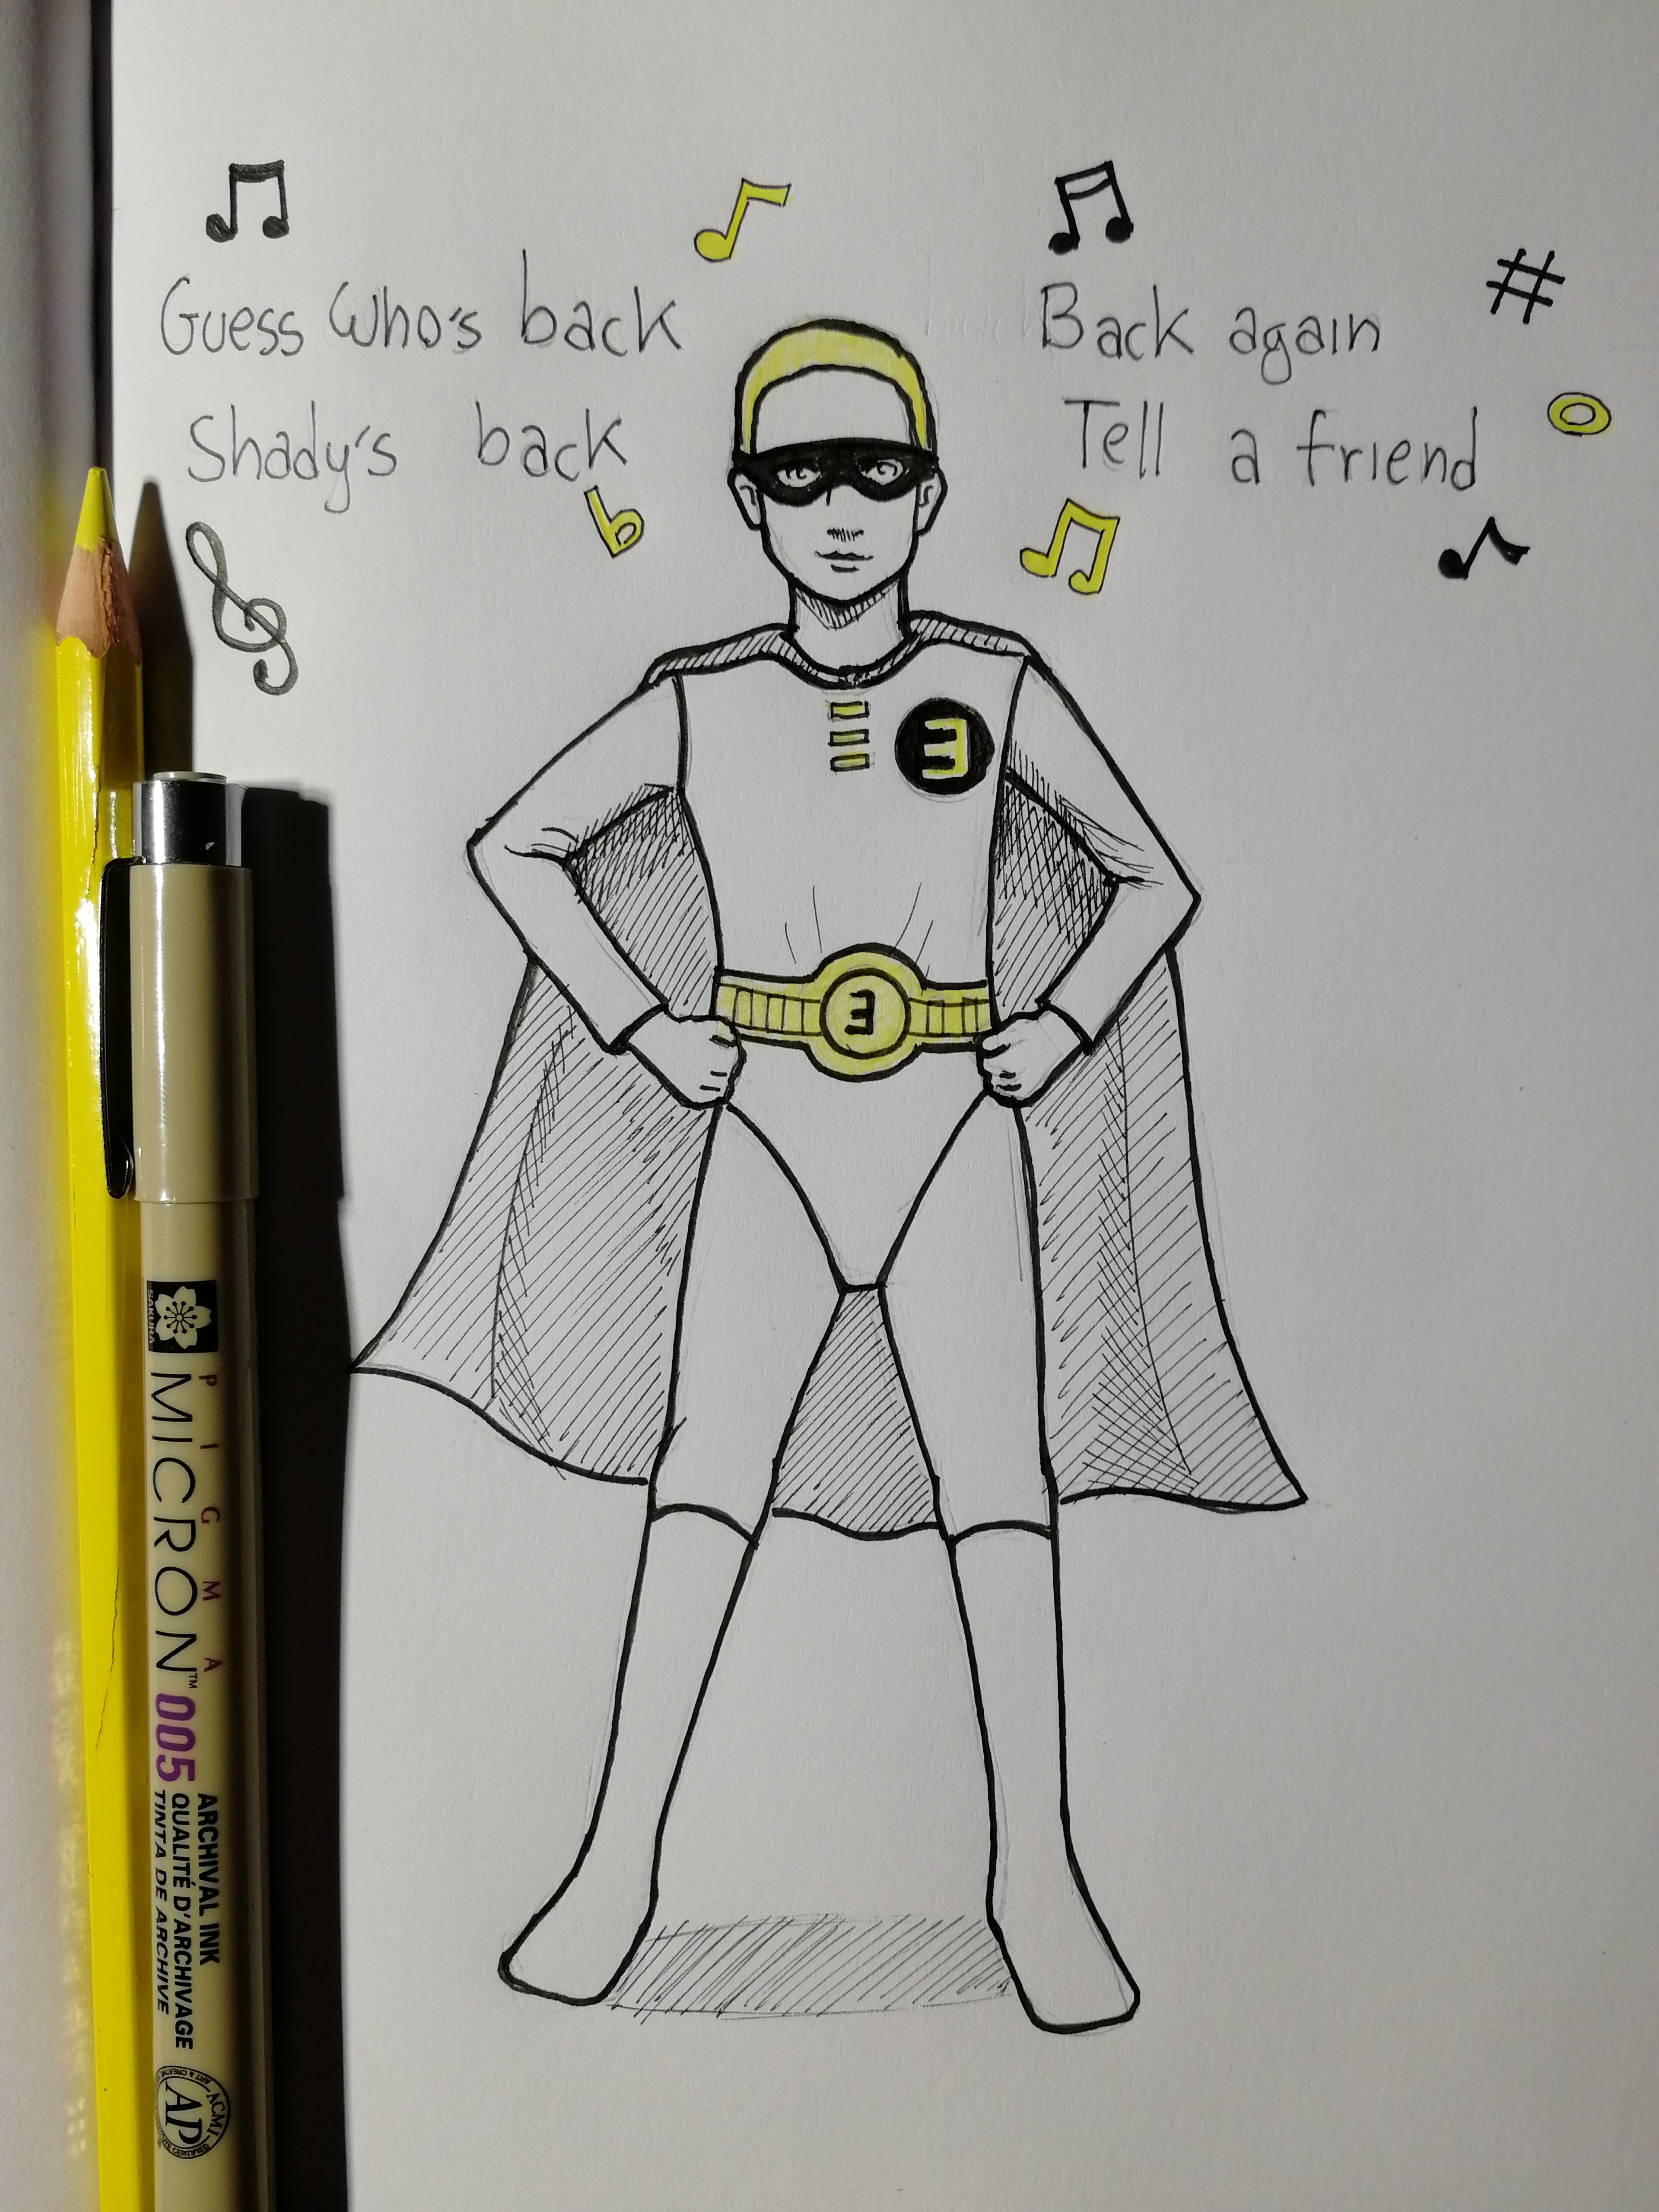 Guess Who's back
Back again
Shady's back
Tell a friend
Ǝ
Ǝ
SAKURA
PIGMA
MICRON™ 005
ARCHIVAL INK
QUALITÉ D'ARCHIVAGE
TINTA DE ARCHIVE
ACMI
AP